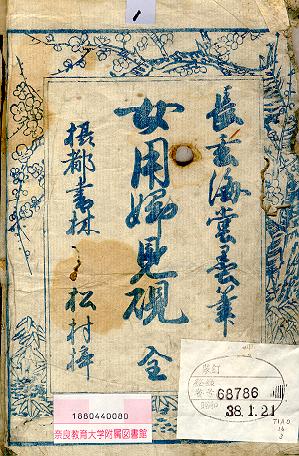 1
長玄海堂
女用婦見硯 全
摂都書林
松村梓
68786
38.1.21
1880440080
奈良教育大学附属図書館